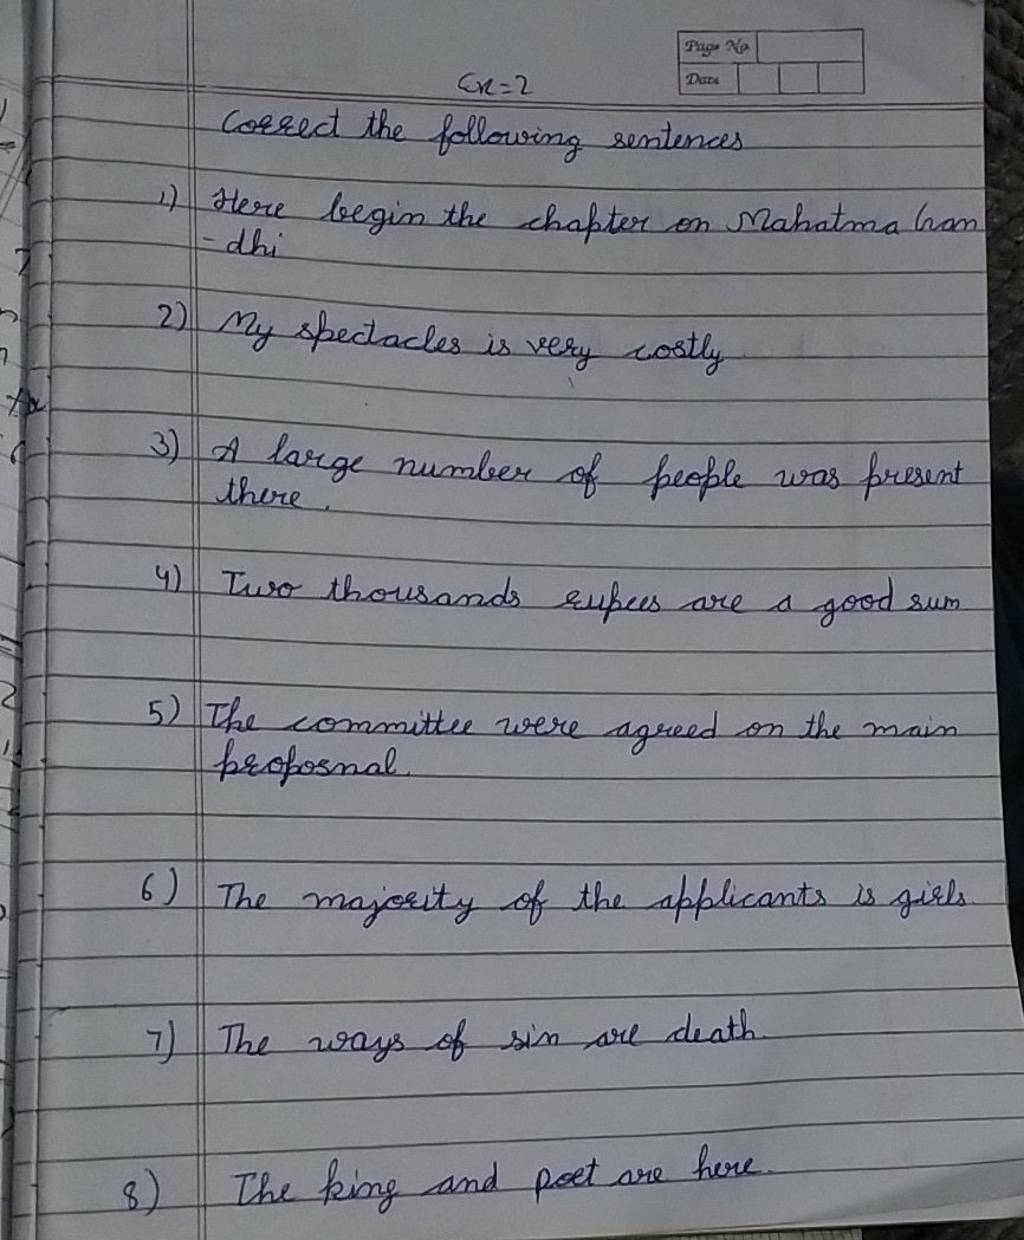 Page No
Date
Ex=2
Correct the following sentences
1) Here begin the chapter on Mahatma Gan
-dhi
2) My spectacles is very costly
3) A large number of people was present
there.
4) Two thousands rupees are a good sum
5) The committee were agreed on the main
proposnal.
6) The majority of the applicants is girls.
7) The ways of sin are death.
8) The king and poet are here.